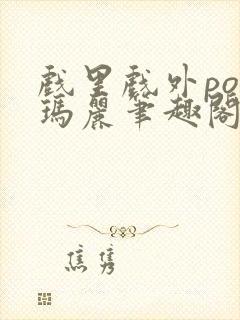 戲里戲外po
瑪麗筆趣閣
焦隽